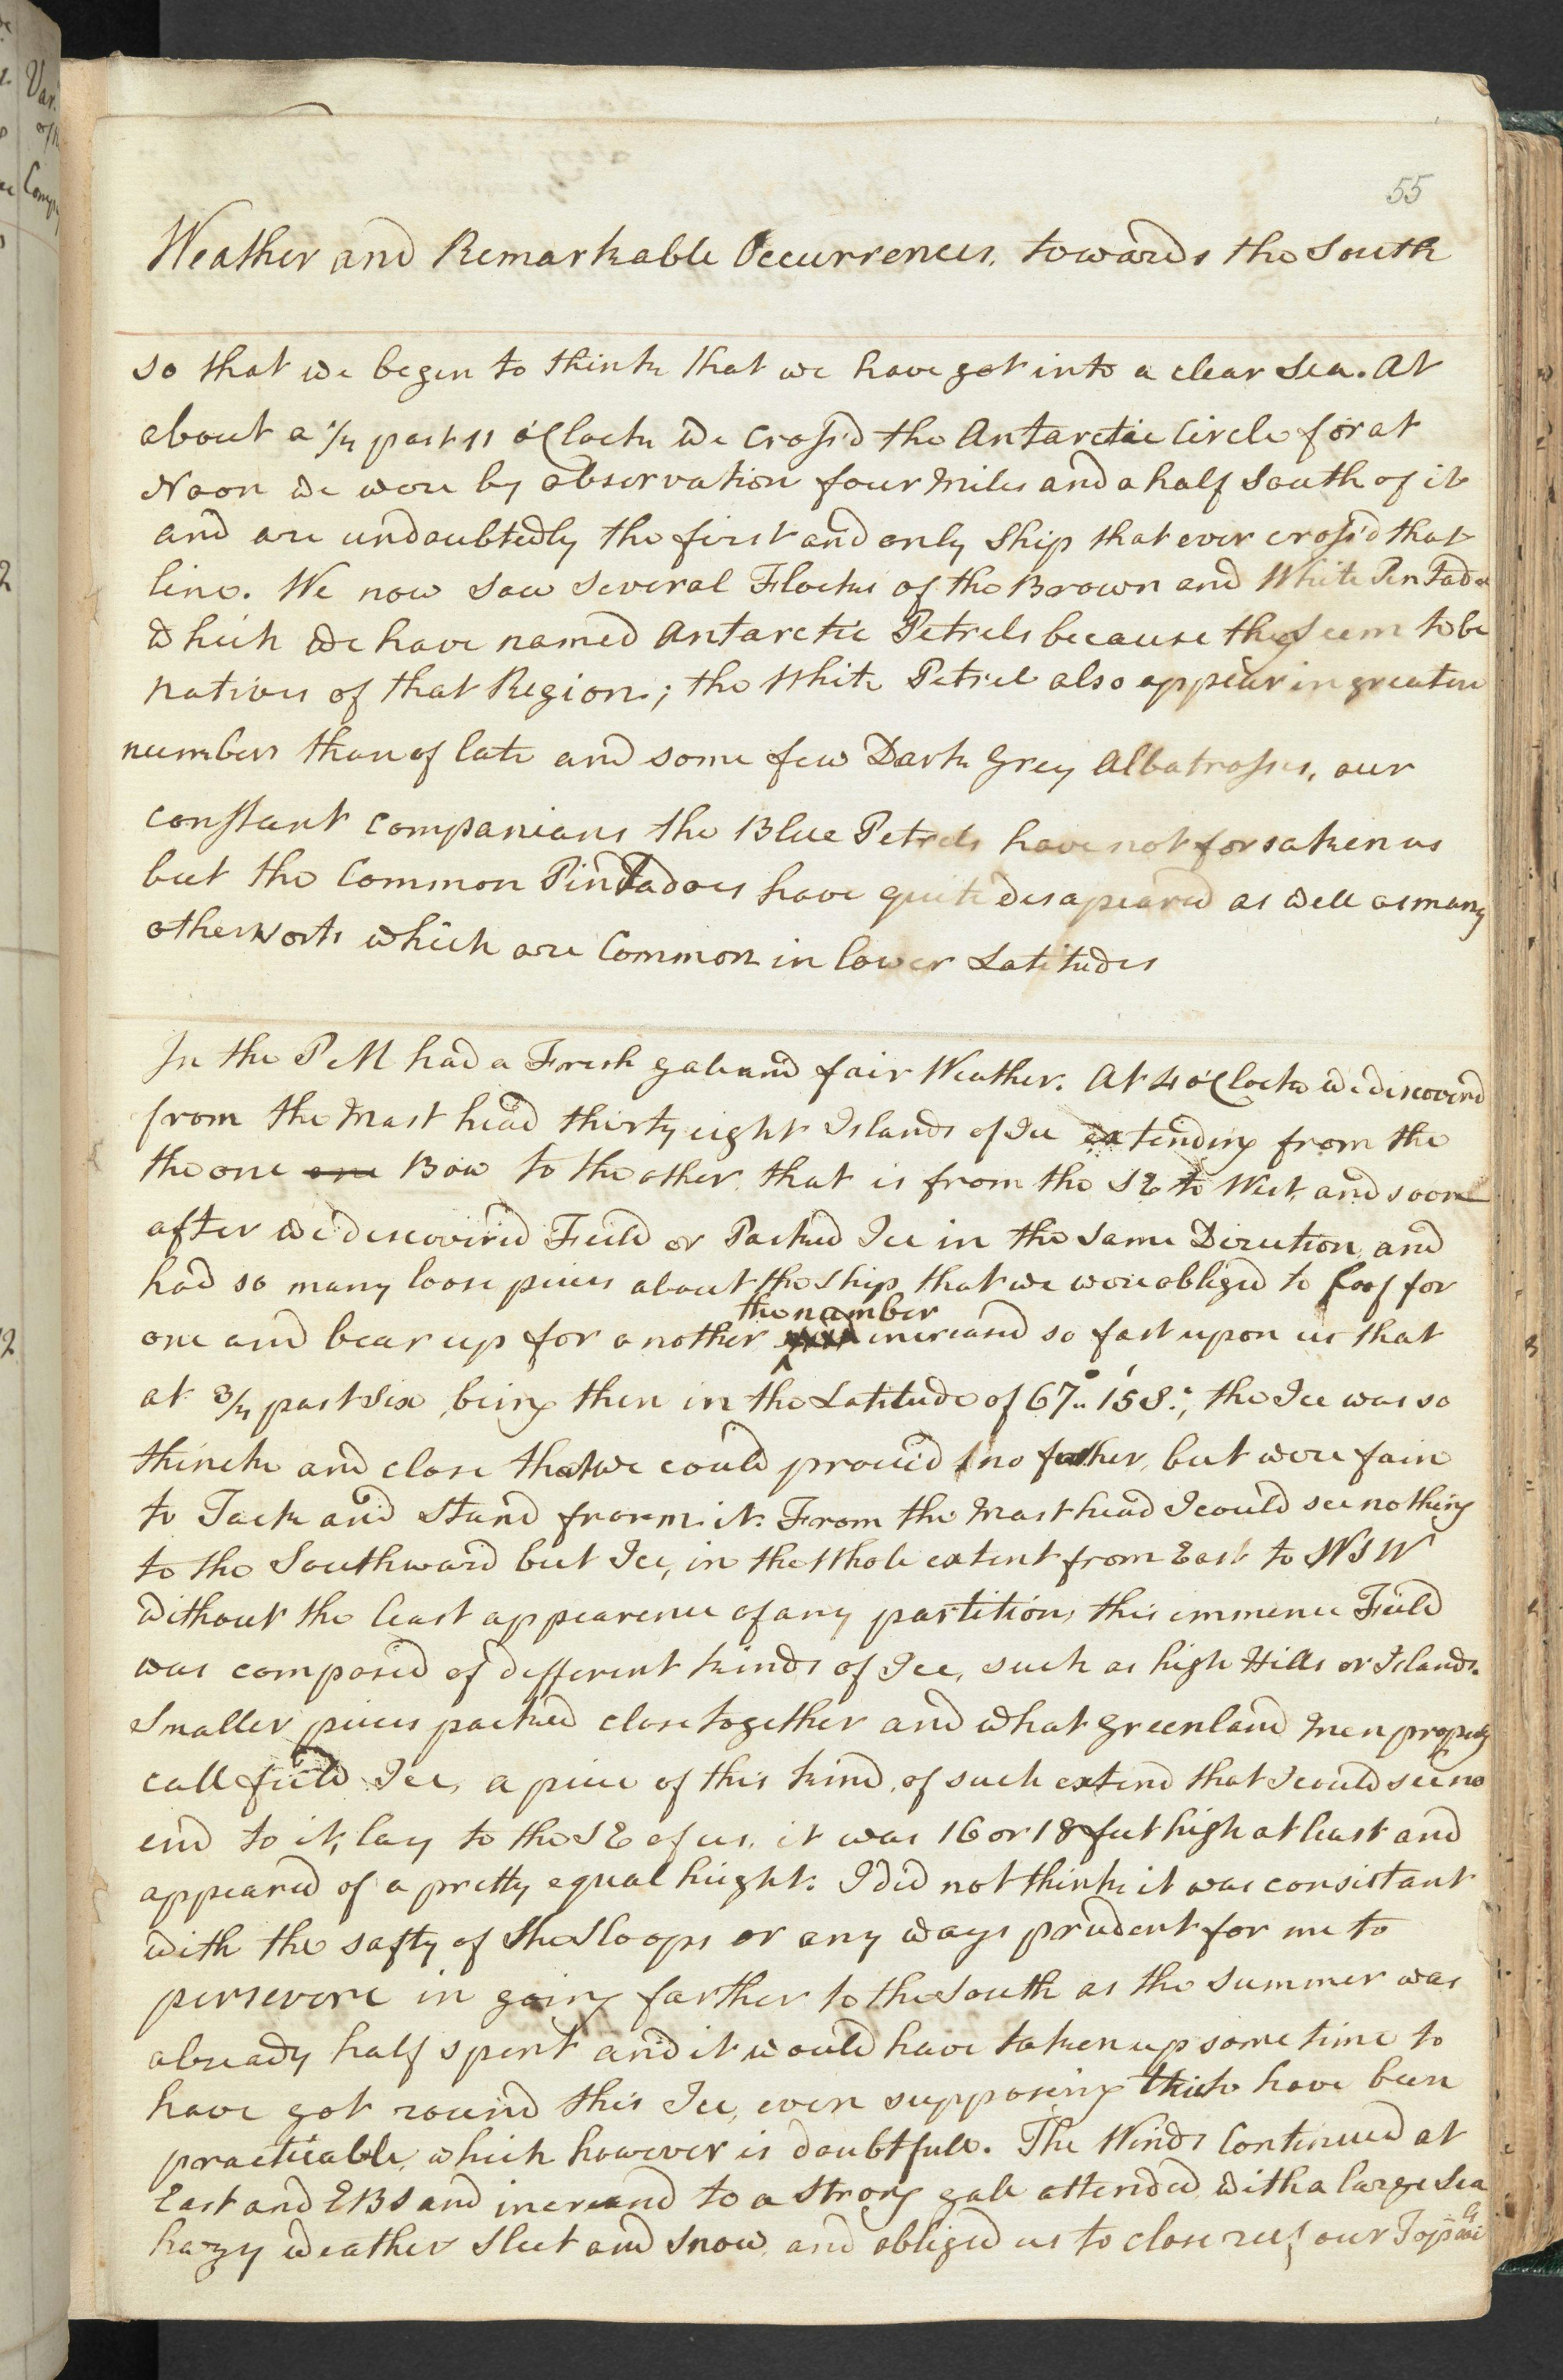 55
Weather and Remarkable Occurrences. towards the South
so that we begin to think that we have got into a clear Sea. At
about a 1/4 past 11 o'Clock we cross'd the Antarctic Circle for at
Noon we were by observation four Miles and a half South of it
and are undoubtedly the first and only Ship that ever cross'd that
line. We now saw several Flocks of the Brown and White Pentados
which we have named Antarctic Petrels because they seem to be
natives of that Region; the White Petrel also appear in greater
numbers than of late and some few Dark Grey Albatrosses, our
constant companions the Blue Petrels have not forsaken us
but the Common Pintadoes have quite disapeared as well as many
other sorts which are Common in lower Latitudes
In the PM had a Fresh gale and fair Weather. At 4 o'Clock we discoverd
from the Mast head thirty eight Islands of Ice extending from the
the one one Bow to the other, that is from the SE to West, and soon
after we discovered Feild or Packed Ice in the same Direction and
had so many loose pieces about the Ship that we were obliged to loof for
the number
one and bear up for another, increased so fast upon us that
at 3/4 past Six, being then in the Latitude of 67°..15' S.; the Ice was so
thinck and close that we could proceed no father, but were fain
to Tack and Stand from it. From the Mast head I could see nothing
to the Southward but Ice, in the Whole extent from East to WSW
without the least appearence of any partition, this immence Feild
was composed of different kinds of Ice, such as high Hills or Islands.
Smaller pieces packed close together and what Greenland Men properly
call field Ice, a piece of this kind, of such extend that I could see no
end to it, lay to the SE of us. it was 16 or 18 feet high at least and
appeared of a pretty equal hieght. I did not think it was consistant
with the safty of the Sloops or any ways prudent for me to
persevere in going farther to the South as the summer was
already half spent and it would have taken up some time to
have got round this Ice, even supposing this to have been
practicable, which however is doubtfull. The Winds Continued at
East and EBS and increased to a strong gale attended with a large Sea
hazy weather Sleet and Snow and obliged us to close reef our Topsails